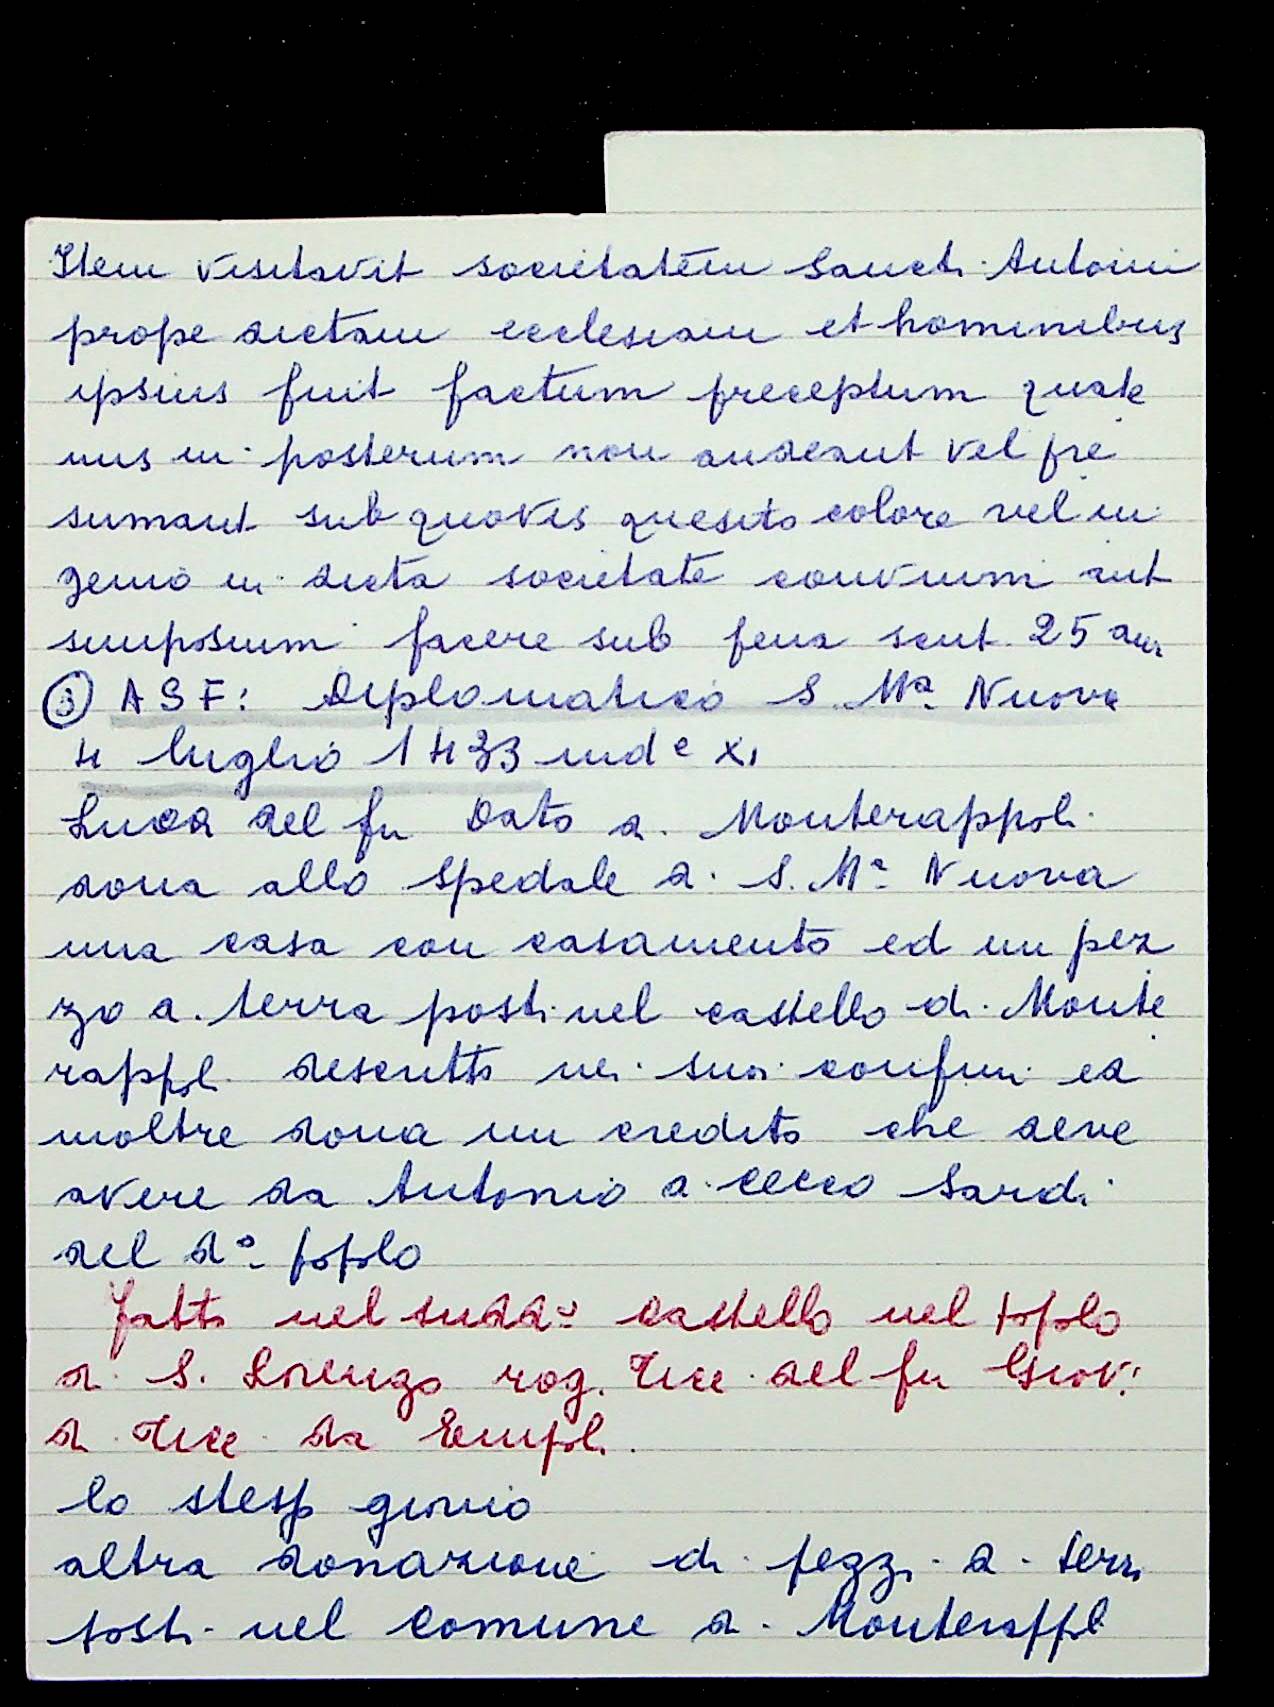 Item visitavit societatem Sancti Antonii
prope dictam ecclesiam et hominibus
ipsius fuit factum preceptum quate
nus in posterum non audeant vel pre
sumant sub quovis quesito colore vel in
genio in dicta societate convivium aut
simposium facere sub pena scut. 25 aur
③ ASF: Diplomatico S. Mª Nuova
4 luglio 1433 indᵉ XI
Luca del fu Dato di Monterappoli
dona allo spedale di S. Mª Nuova
una casa con casamento ed un pez
zo di terra posti nel castello di Monte
rappoli descritto nei suoi confini ed
inoltre dona un credito che deve
avere da Antonio di Cecco Sardi
del dº popolo
fatto nel suddº castello nel popolo
di S. Lorenzo rog. del fu Giov:
di da Empoli.
lo stesso giorno
altra donazione di pezzi di terra
posti nel comune di Monterappoli